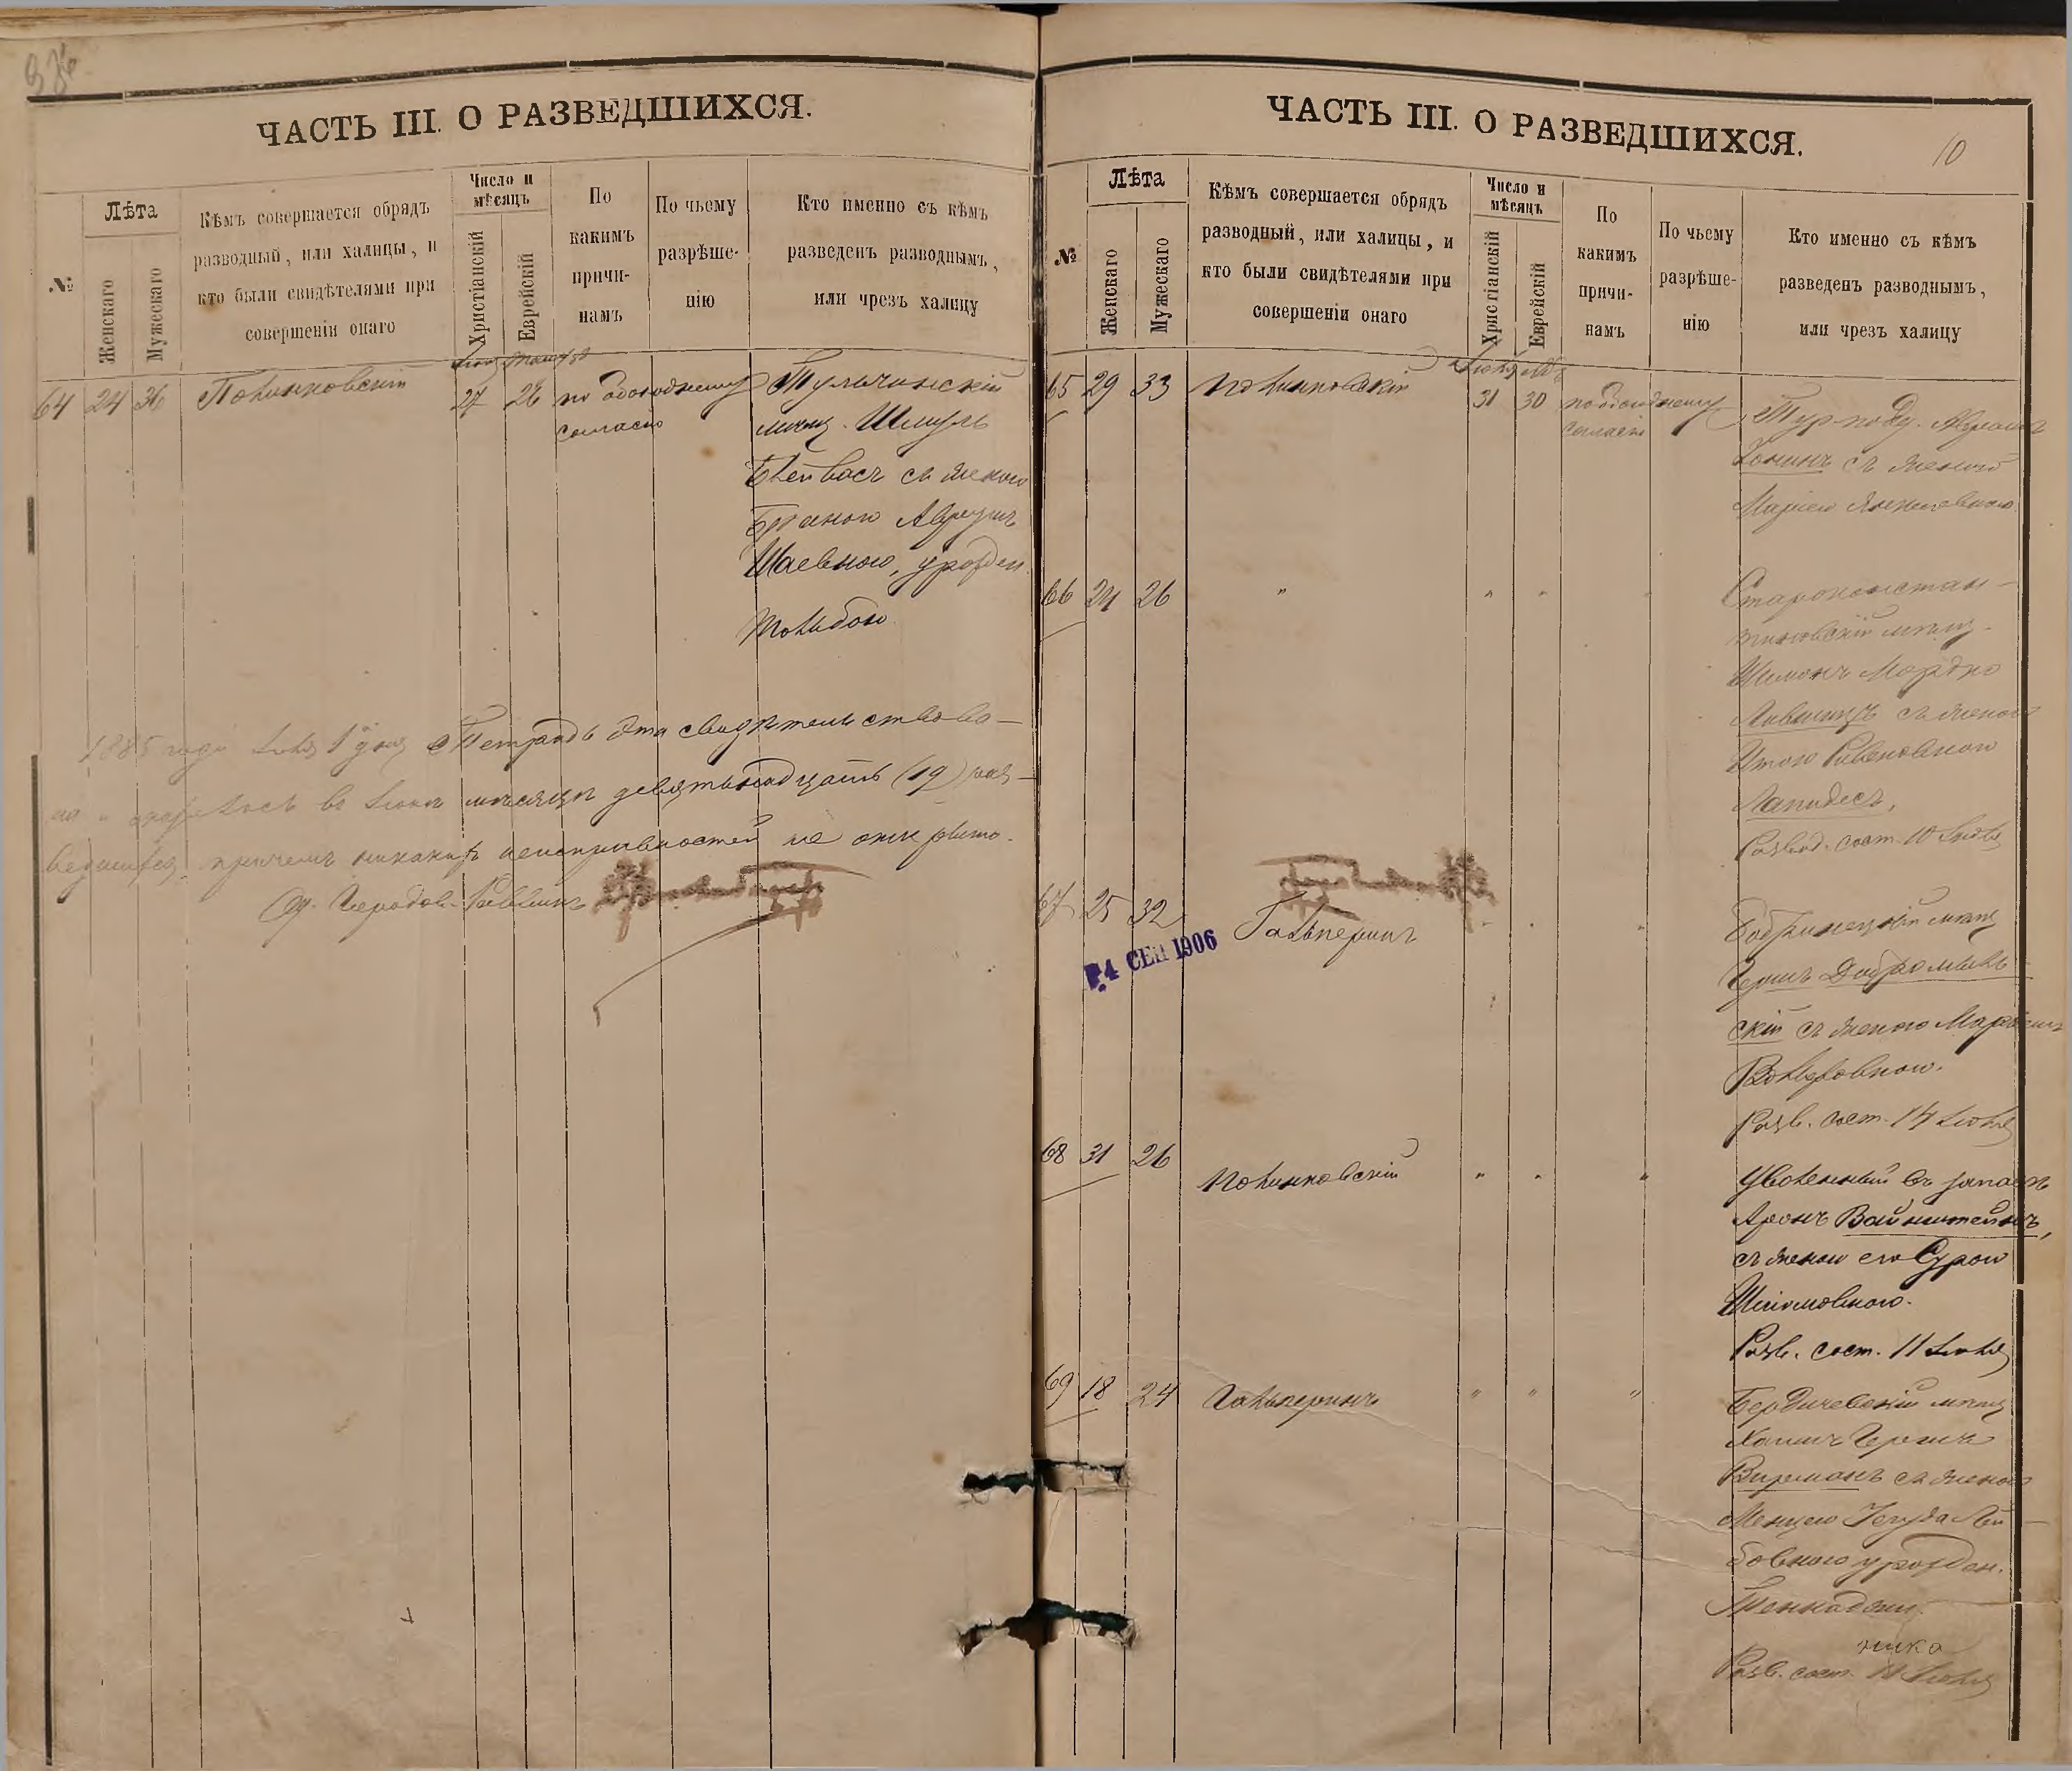 ЧАСТЬ III. О РАЗВЕДШИХСЯ.
№
Лѣта
Женскаго
Мужескаго
Кѣмъ совершается обрядъ
разводный, или халицы, и
кто были свидѣтелями при
совершеніи онаго
Число и
мѣсяцъ
Христіанскій
Еврейскій
По
какимъ
причи-
намъ
По чьему
разрѣше-
нію
Кто именно съ кѣмъ
разведенъ разводнымъ,
или чрезъ халицу
64 24 36 Полинковскій 27 26 по обоюдному Тульчинскій
согласію мѣщ. Шмуль
съ женою
Шаевною, урожден.
1885 года Іюля 1 дня Тетрадь эта свидѣтельствова-
на и оказалось въ Іюнѣ мѣсяцѣ девятьнадцать (19) раз-
ведшихся, причемъ никакихъ неисправностей не открыто.
Од. Городов. Раввинъ
ЧАСТЬ III. О РАЗВЕДШИХСЯ.
10
№
Лѣта
Женскаго
Мужескаго
Кѣмъ совершается обрядъ
разводный, или халицы, и
кто были свидѣтелями при
совершеніи онаго
Число и
мѣсяцъ
Христіанскій
Еврейскій
По
какимъ
причи-
намъ
По чьему
разрѣше-
нію
Кто именно съ кѣмъ
разведенъ разводнымъ,
или чрезъ халицу
Іюль Абъ
65 29 33 Полинковскій 31 30 по обоюдному Тур. подд. Авраамъ
согласію съ женою
Маріею Янкелевною
66 24 26 " " " Староконстан-
тиновскій мѣщ.
Шимонъ Мордко
Лившицъ съ женою
Итою Рувеновною
Лапидесъ,
Развод. сост. 10 Іюля
67 25 32 Гальперинъ Бобринецкій мѣщ
Гершъ Добромыль-
скій съ женою
Вольфовною.
Разв. сост. 14 Іюля
4 СЕН 1906
68 31 26 Полинковскій " " " Уволенный въ запасъ
Аронъ Вайнштейнъ,
съ женою его Сурою
Шліомовною.
Разв. сост. 11 Іюля
69 18 24 Гальперинъ " " " Бердичевскій мѣщ
Хаимъ Гершъ
Вирманъ съ женою
Менцею Іегуда Лей-
бовною урожден.
ника
Разв. сост. Іюля